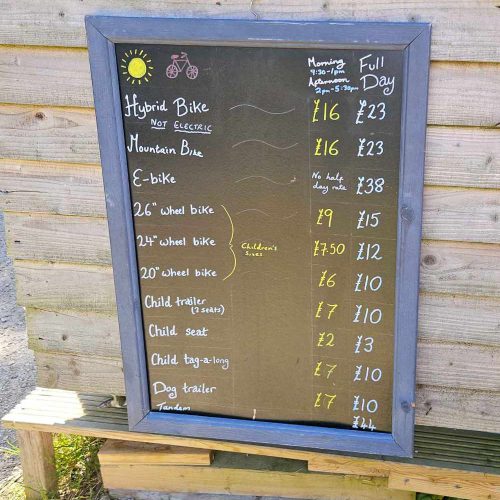 Morning
9:30-1pm
Afternoon
2pm-5:30pm
Full Day
Hybrid Bike £16 £23
NOT ELECTRIC
Mountain Bike £16 £23
E-bike No half day rate £38
26" wheel bike £9 £15
24" wheel bike Children's sizes £7.50 £12
20" wheel bike £6 £10
Child trailer £7 £10
(2 seats)
Child seat £2 £3
Child tag-a-long £7 £10
Dog trailer £7 £10
Tandem £44